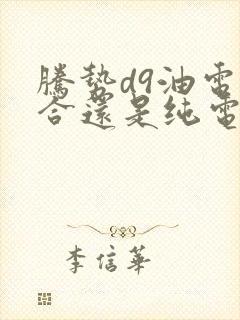 騰勢d9油電
合還是纯電
李信華